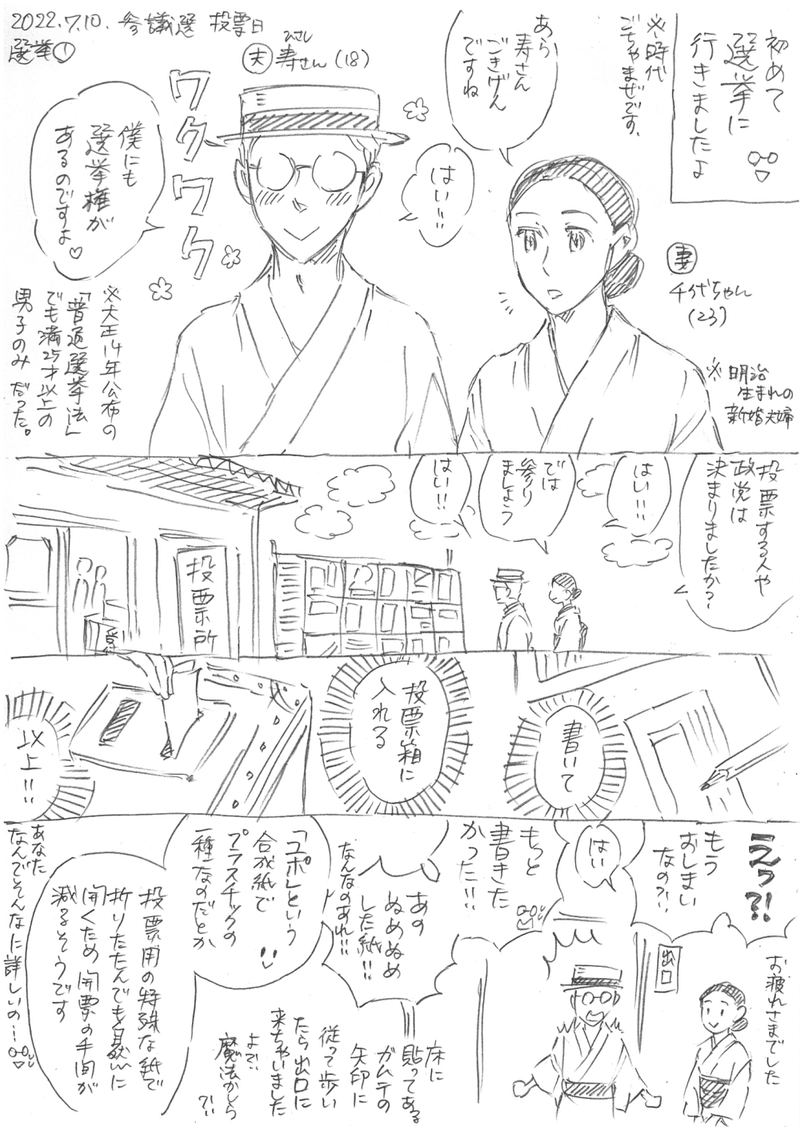 2022.7.10. 参議選 投票日
選挙①
初めて
選挙に
行きましたよ
※時代
ごちゃまぜです。
あら
寿さん
ごきげん
ですね
夫 寿さん(18)
ひさし
はい!!
ワクワクワク
僕にも
選挙権が
あるのですよ♡
妻
千代ちゃん
(23)
※明治
生まれの
新婚夫婦
※大正14年公布の
「普通選挙法」
でも満25才以上の
男子のみだった。
投票する人や
政党は
決まりましたか?
はい!!
では
参り
ましょう
はい!!
投票所
受付
書いて
投票箱に
入れる
以上!!
えっ?!
もう
おしまい
なの?!
はい
もっと
書きた
かった!!
お疲れさまでした
出口
あの
ぬめぬめ
した紙!!
なんなのあれ!!
床に
貼ってある
ガムテの
矢印に
従って歩い
たら出口に
来ちゃいました
よ?!
魔法かしら
?!
「ユポ」という
合成紙で
プラスチックの
一種なのだとか
投票用の特殊な紙で
折りたたんでも自然に
開くため開票の手間が
減るそうです
あなた
なんでそんなに詳しいの!